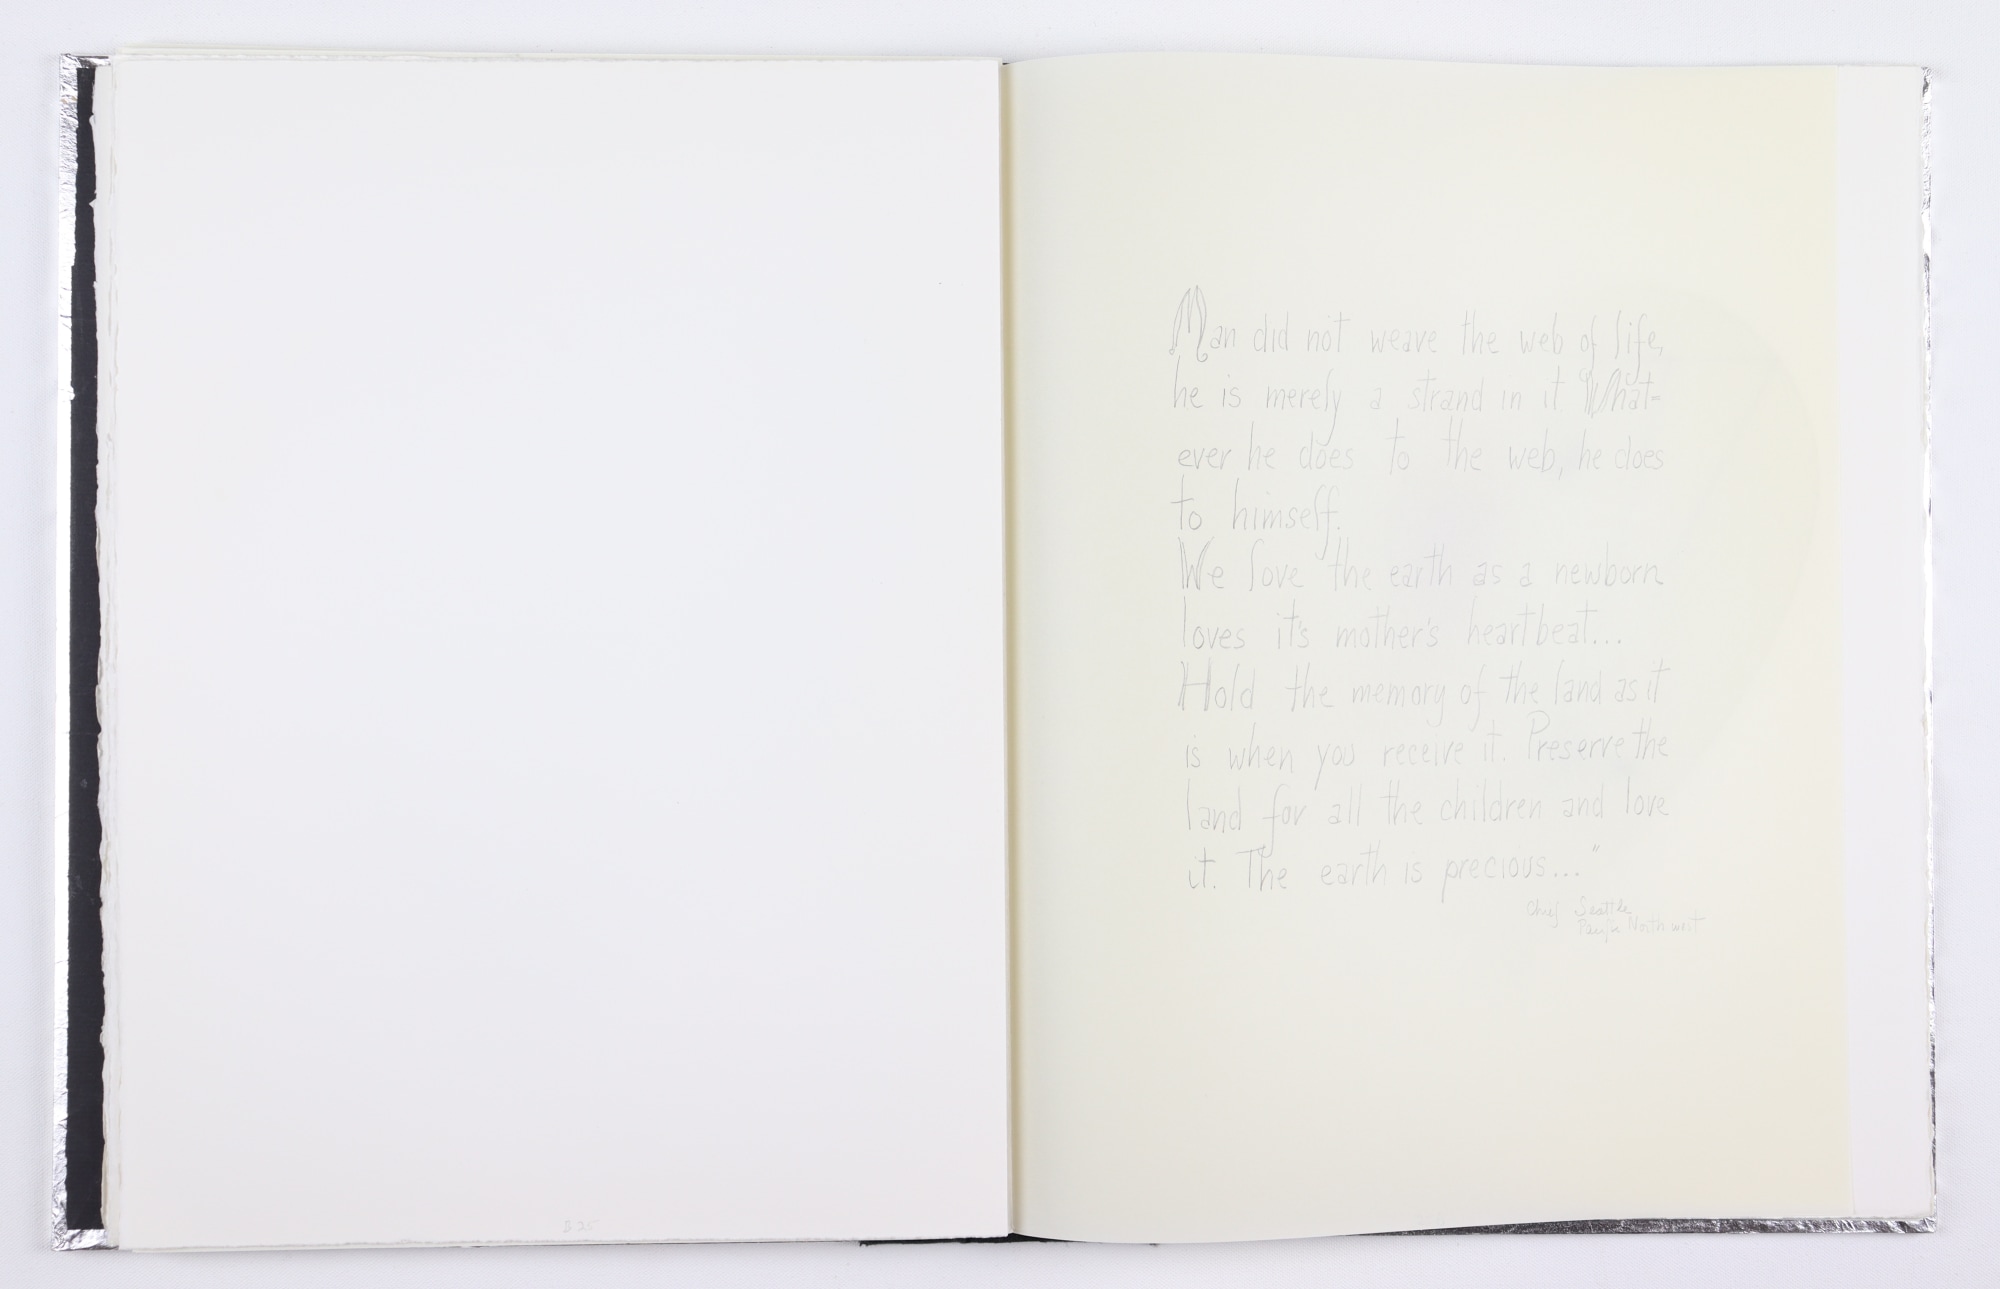 Man did not weave the web of life,
he is merely a strand in it. What=
ever he does to the web, he does
to himself.
We love the earth as a newborn
loves it's mother's heartbeat...
Hold the memory of the land as it
is when you receive it. Preserve the
land for all the children and love
it. The earth is precious..."
Chief Seattle
Pacific North west